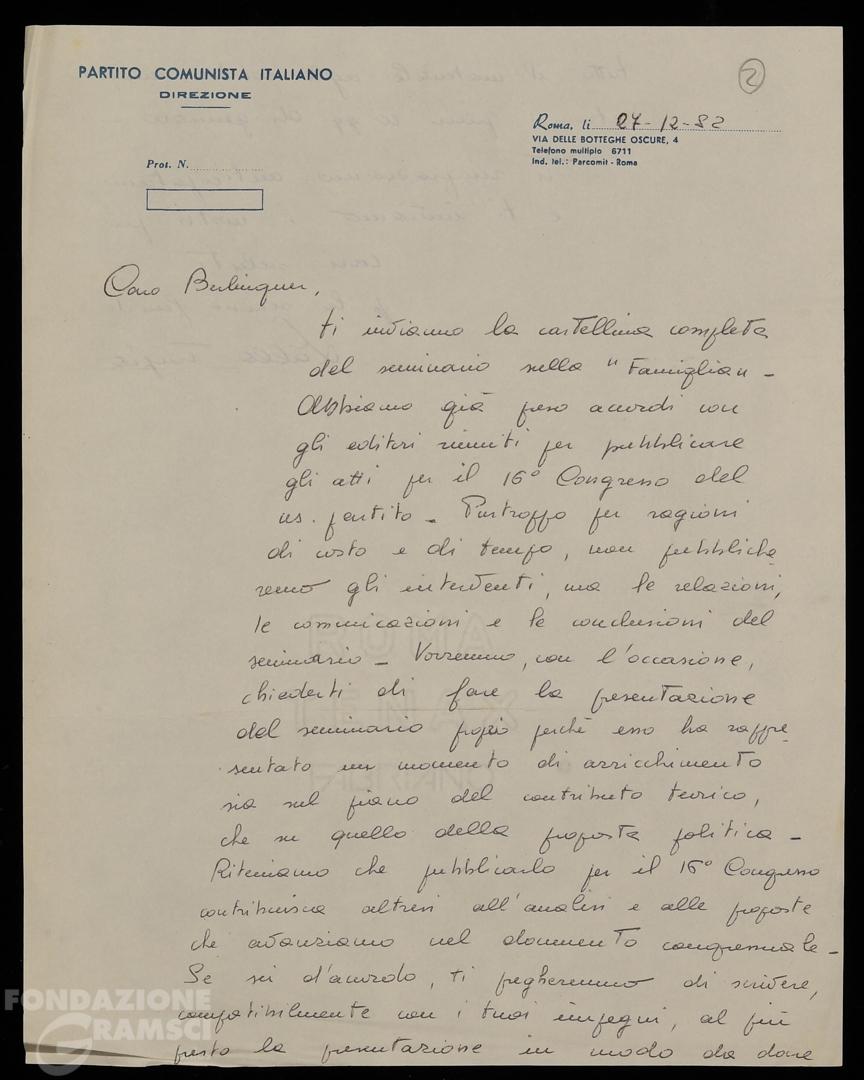 PARTITO COMUNISTA ITALIANO
DIREZIONE
2
Roma, li 27-12-82
VIA DELLE BOTTEGHE OSCURE, 4
Telefono multiplo 6711
Ind. tel.: Parcomit - Roma
Prot. N.
Caro Berlinguer,
ti inviamo la cartellina completa
del seminario sulla "Famiglia" -
Abbiamo già preso accordi con
gli editori riuniti per pubblicare
gli atti per il 16° Congresso del
ns. partito - Purtroppo per ragioni
di costo e di tempo, non pubbliche
remo gli interventi, ma le relazioni,
le comunicazioni e le conclusioni del
seminario - Vorremmo, con l'occasione,
chiederti di fare la presentazione
del seminario proprio perchè esso ha rappre
sentato un momento di arricchimento
sia sul piano del contributo teorico,
che su quello della proposta politica -
Riteniamo che pubblicarlo per il 16° Congresso
contribuisca altresì all'analisi e alle proposte
che avanziamo nel documento congressuale -
Se sei d'accordo, ti pregheremmo di scrivere,
compatibilmente con i tuoi impegni, al più
presto la presentazione in modo da dare
FONDAZIONE
GRAMSCI